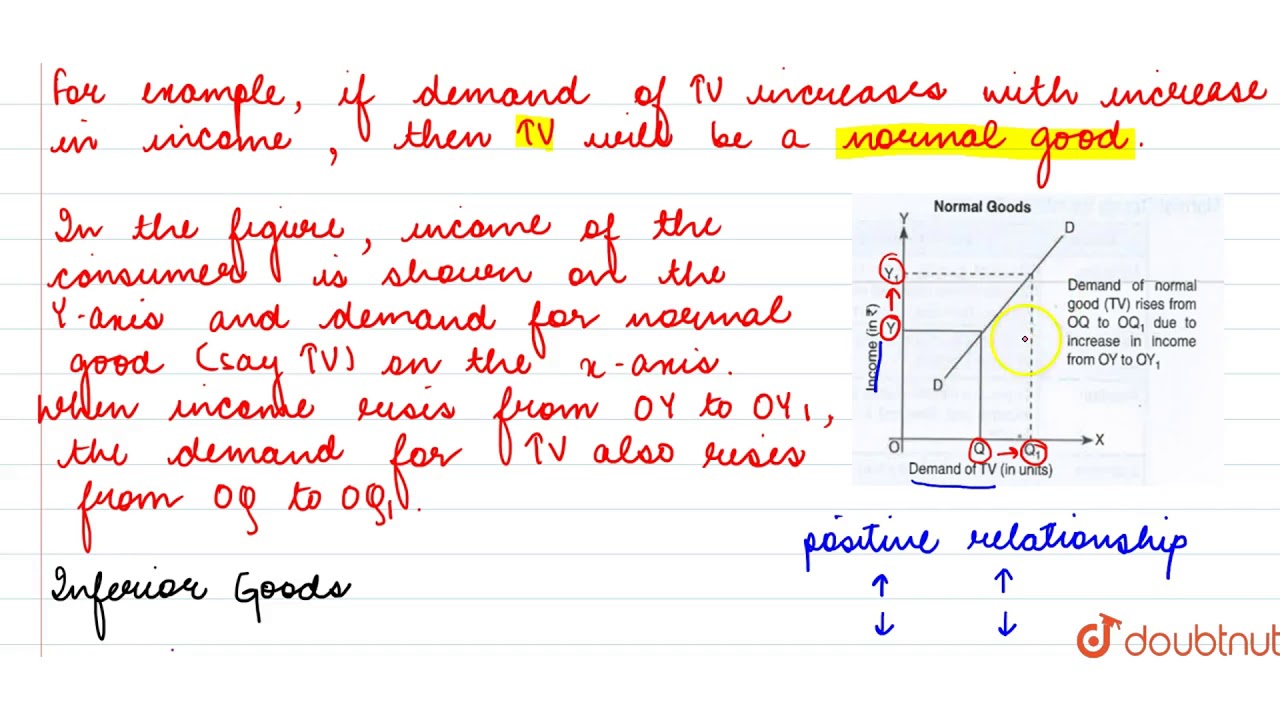 For example, if demand of TV increases with increase
in income, then TV will be a normal good.
In the figure, income of the
consumer is shown on the
Y-axis and demand for normal
good (say TV) on the x-axis.
When income rises from OY to OY1,
the demand for TV also rises
from OQ to OQ1.
Inferior Goods
Normal Goods
Y
D
Y1
Y
Income (in ₹)
D
O
Q
Q1
X
Demand of TV (in units)
Demand of normal
good (TV) rises from
OQ to OQ1 due to
increase in income
from OY to OY1
positive relationship
↑ ↑
↓ ↓
doubtnut